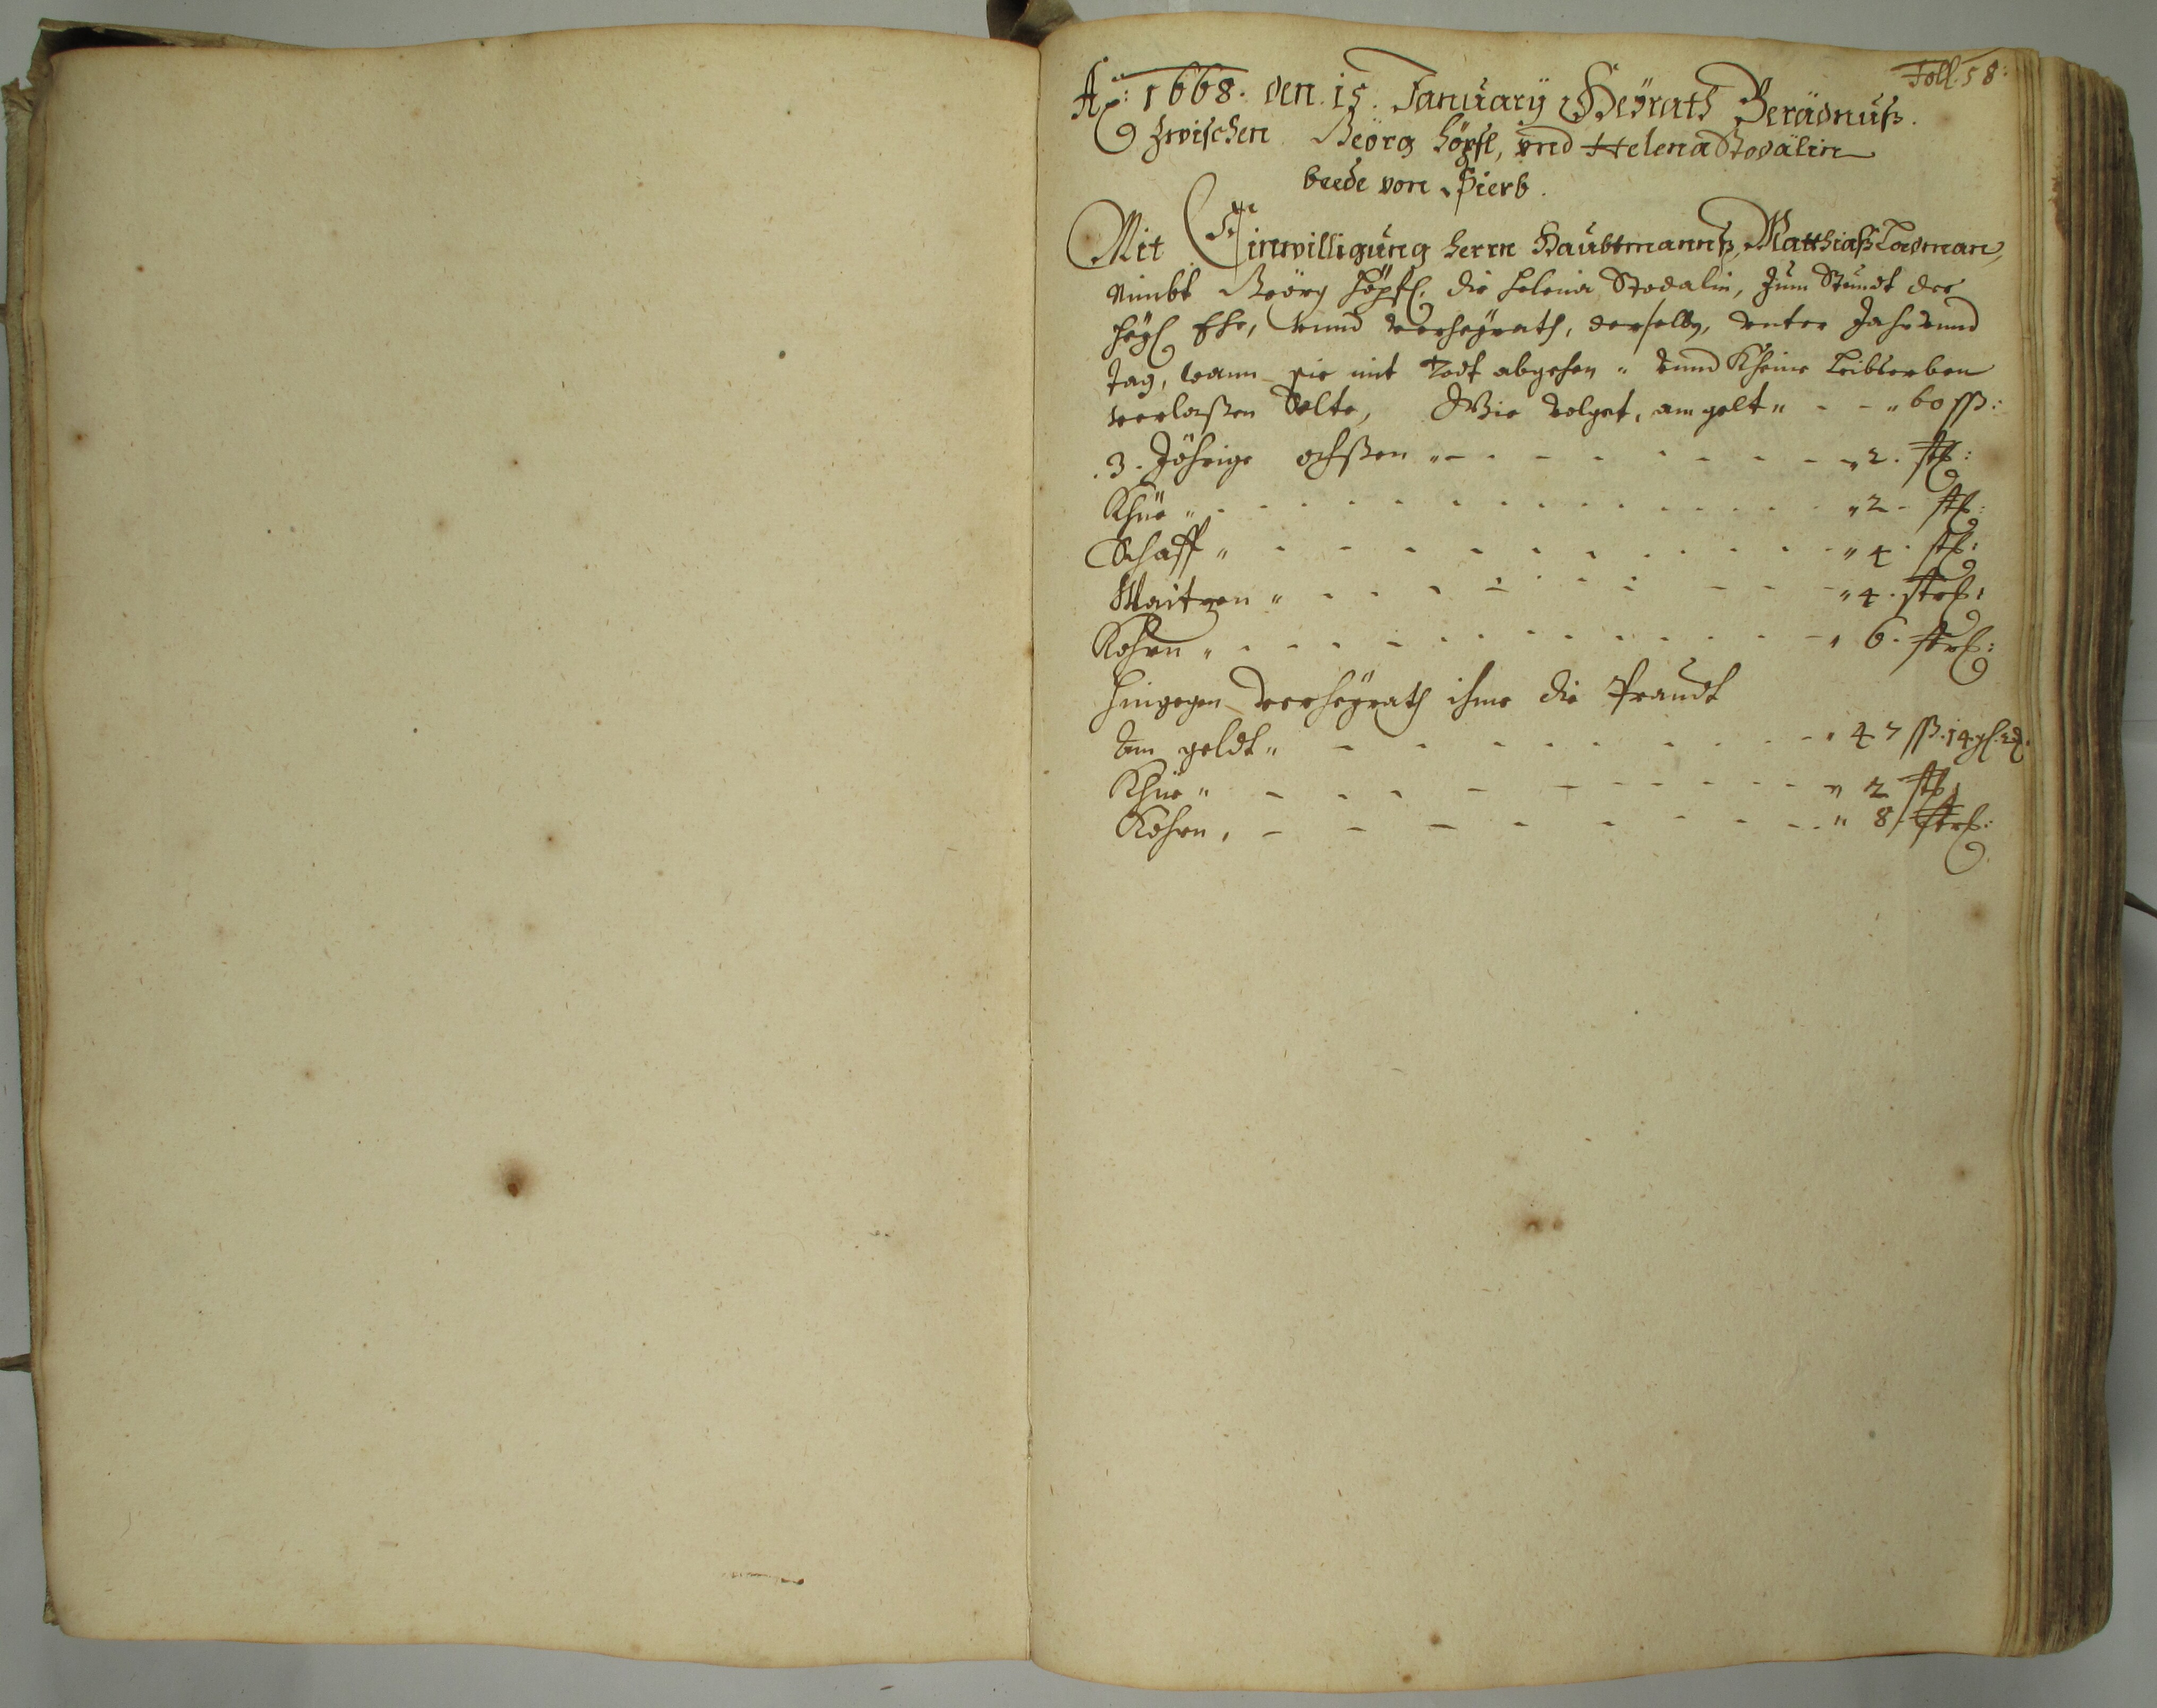 Foll. 58:
Aō: 1668. den. 15. January Heÿrath Berädnuß.
zwischen Georg höpfl, vnd Helena Stodälin
beede von Pierb.
Mit Einwilligung herrn Haubtmannß, Matthiaß Ladman,
nimbt Georg höpfl. die helena Stodalin, zum Standt der
heyl Ehe, vnnd verheyrath, derselben, vnter Jahr vnnd
tag, wann sie mit Todt abgehen " vnnd Kheine Leibserben
verlaßen solte, Wie volget, am gelt " - - " 60 ß:
3. Jöhrige ochßen " - - - " 2. stk:
Khüe " - - - " 2 - stk:
Schaff " - - - " 4 . stk:
Waitzen " - - - " 4 . strl:
Kohrn " - - - " 6 . strl:
hingegen verheyrath ihme die Praudt
am geldt " - - - " 47 ß. 14 gl. 2 d.
Khüe " - - - " 2 stk:
Kohrn, - - - " 8 strl: